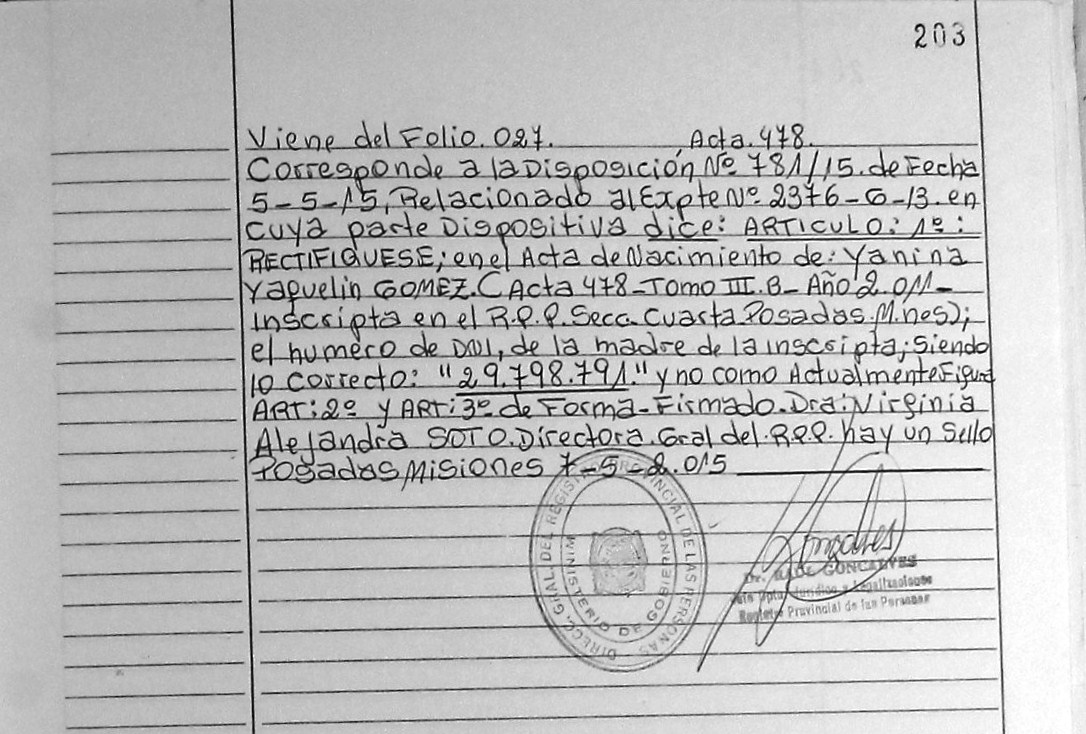 203
Viene del Folio. 027. Acta. 478.
Corresponde a la Disposición Nº 781/15. de Fecha
5-5-15, Relacionado al Expte Nº 2376-G-13. en
cuya parte Dispositiva dice: ARTICULO: 1º:
RECTIFIQUESE; en el Acta de Nacimiento de: Yanina
Yaquelin GOMEZ. (Acta 478-Tomo III. B- Año 2.011-
Inscripta en el R.P.P. Secc. Cuarta Posadas. M.nes);
el numero de DNI, de la madre de la inscripta; Siendo
lo correcto: "29.798.791." y no como Actualmente Figura
ART: 2º y ART: 3º de Forma- Firmado. Dra: Virginia
Alejandra SOTO. Directora. Gral del. R.P.P. hay un Sello
Posadas, Misiones 7-5-2.015
DIRECC. GRAL. DEL REGISTRO PROVINCIAL DE LAS PERSONAS
MINISTERIO DE GOBIERNO
Dr. RAUL GONCALVES
Jefe Dpto. Jurídico y Legalizaciones
Registro Provincial de las Personas